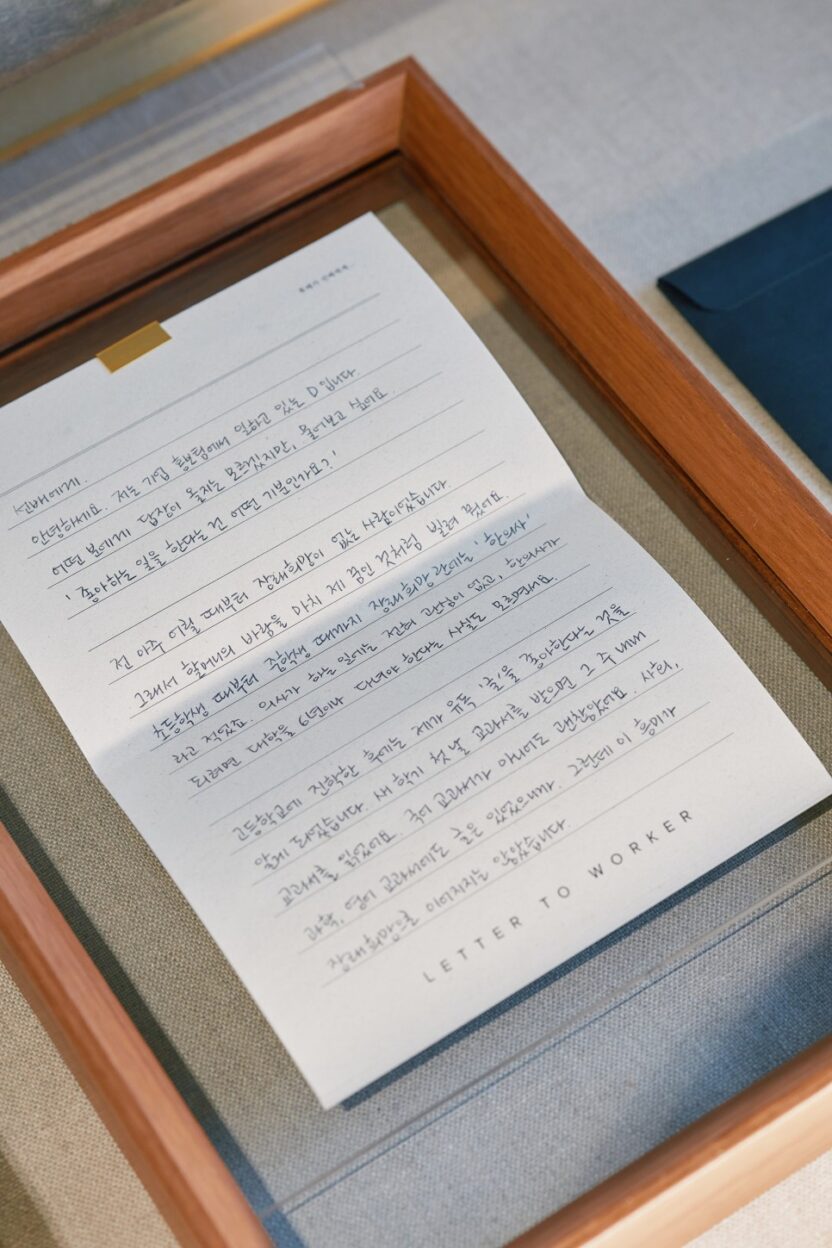 선배에게.
안녕하세요. 저는 기업 홍보팀에서 일하고 있는 D입니다.
어떤 분에게 답장이 올지는 모르겠지만, 물어보고 싶어요.
'좋아하는 일을 한다는 건 어떤 기분인가요?'
전 아주 어릴 때부터 장래희망이 없는 사람이었습니다.
그래서 할머니의 바람을 마치 제 꿈인 것처럼 빌려 썼어요.
초등학생 때부터 중학생 때까지 장래희망란에는 '한의사'
라고 적었죠. 의사가 하는 일에는 전혀 관심이 없고, 한의사가
되려면 대학을 6년이나 다녀야 한다는 사실도 모르면서요.
고등학교에 진학한 후에는 제가 유독 '글'을 좋아한다는 것을
알게 되었습니다. 새 학기 첫 날 교과서를 받으면 그 주 내내
교과서를 읽었어요. 국어 교과서가 아니어도 괜찮았어요. 사회,
과학, 영어 교과서에도 글은 있었으니까. 그런데 이 흥미가
장래희망으로 이어지지는 않았습니다.
LETTER TO WORKER